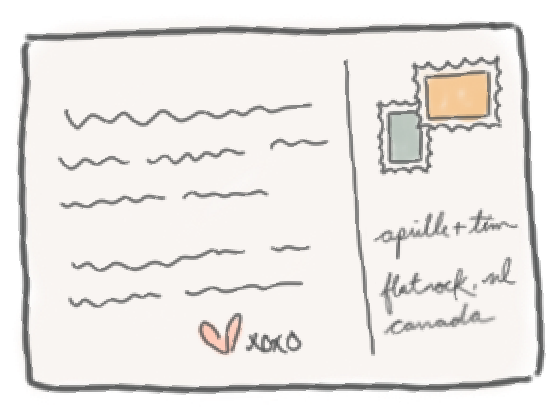 xoxo
aprille + tim
flatrock, nl
canada